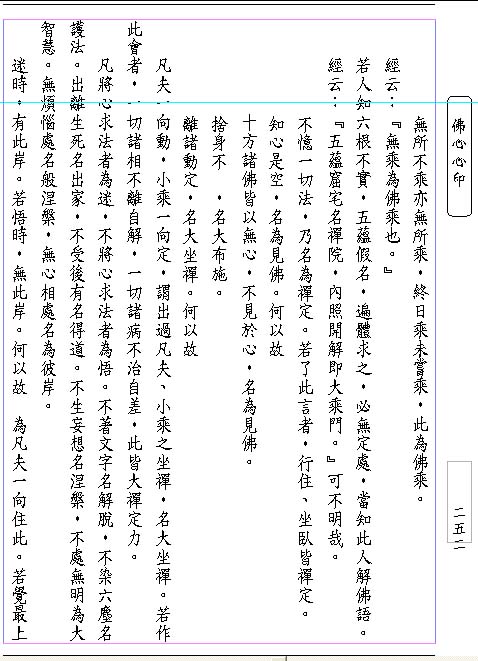 佛心心印
二五二
無所不乘亦無所乘，終日乘未嘗乘，此為佛乘。
經云：『無乘為佛乘也。』
若人知六根不實，五蘊假名，遍體求之，必無定處，當知此人解佛語。
經云：『五蘊窟宅名禪院，內照開解即大乘門。』可不明哉。
不憶一切法，乃名為禪定。若了此言者，行住、坐臥皆禪定。
知心是空，名為見佛。何以故
十方諸佛皆以無心，不見於心，名為見佛。
捨身不　，名大布施。
離諸動定，名大坐禪。何以故
凡夫一向動，小乘一向定，謂出過凡夫、小乘之坐禪，名大坐禪。若作
此會者，一切諸相不離自解，一切諸病不治自差，此皆大禪定力。
凡將心求法者為迷，不將心求法者為悟。不著文字名解脫，不染六塵名
護法。出離生死名出家，不受後有名得道。不生妄想名涅槃，不處無明為大
智慧。無煩惱處名般涅槃，無心相處名為彼岸。
迷時，有此岸。若悟時，無此岸。何以故　為凡夫一向住此。若覺最上